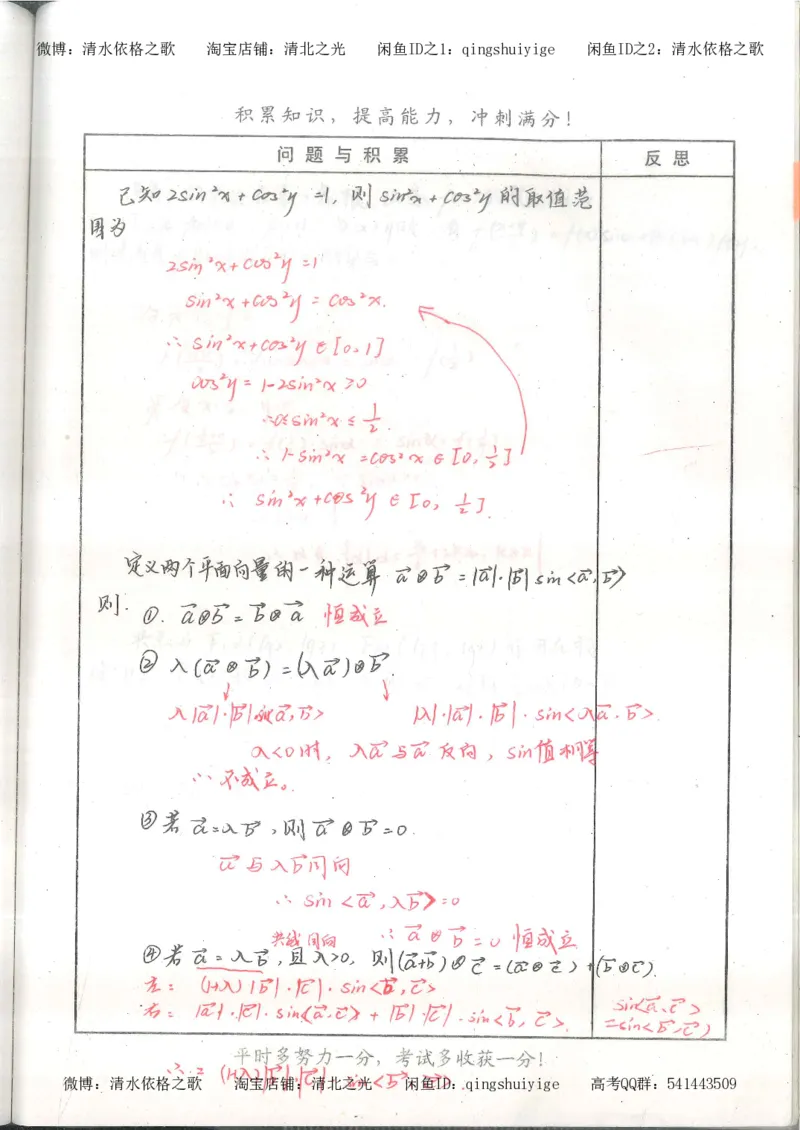 微博：清水依格之歌 淘宝店铺：清北之光 闲鱼ID之1：qingshuiyige 闲鱼ID之2：清水依格之歌
积累知识，提高能力，冲刺满分！
问题与积累 反思
已知 2sin²x + cos²y = 1, 则 sin²x + cos²y 的取值范
围为
2sin²x + cos²y = 1
sin²x + cos²y = cos²x.
∴ sin²x + cos²y ∈ [0, 1]
cos²y = 1-2sin²x ≥0
∴0≤sin²x ≤ 1/2.
∴ 1-sin²x = cos²x ∈ [0, 1/2]
∴ sin²x + cos²y ∈ [0, 1/2].
定义两个平面向量的一种运算 a⃗⊗b⃗ = |a⃗|·|b⃗| sin<a⃗,b⃗>
则. ①. a⃗⊗b⃗ = b⃗⊗a⃗ 恒成立
② λ(a⃗⊗b⃗) = (λa⃗)⊗b⃗.
λ|a⃗|·|b⃗| sin<a⃗,b⃗> |λ|·|a⃗|·|b⃗|·sin<λa⃗·b⃗>.
λ<0时, λa⃗与a⃗反向, sin值相等
∴ 不成立。
③若 a⃗=λb⃗, 则 a⃗⊗b⃗=0.
a⃗与λb⃗同向
∴ sin<a⃗,λb⃗>=0
共线同向 ∴ a⃗⊗b⃗=0 恒成立
④若 a⃗=λb⃗, 且λ>0, 则(a⃗+b⃗)⊗c⃗=(a⃗⊗c⃗)+(b⃗⊗c⃗).
左: (1+λ)|b⃗|·|c⃗|·sin<b⃗,c⃗>
右: |a⃗|·|c⃗|·sin<a⃗,c⃗> + |b⃗|·|c⃗|·sin<b⃗,c⃗>.
sin<a⃗,c⃗>
=sin<b⃗,c⃗>
平时多努力一分，考试多收获一分！
∴ = (1+λ)|b⃗|·|c⃗| sin<b⃗,c⃗>
微博：清水依格之歌 淘宝店铺：清北之光 闲鱼ID：qingshuiyige 高考QQ群：541443509